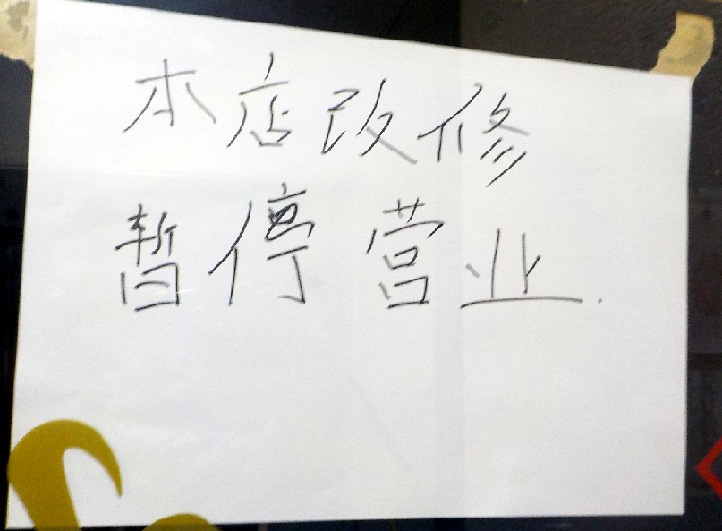 本店改修
暂停营业.